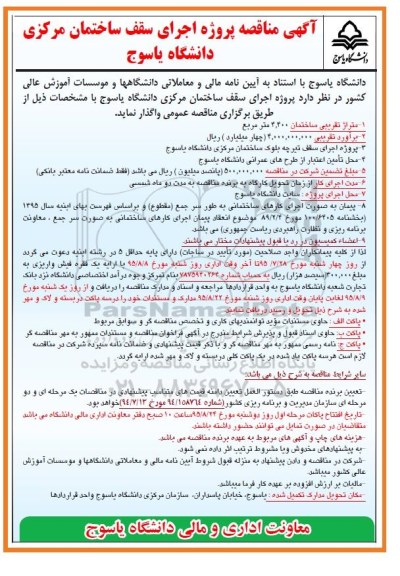 آگهی مناقصه پروژه اجرای سقف ساختمان مرکزی
دانشگاه یاسوج
دانشگاه یاسوج
دانشگاه یاسوج با استناد به آیین نامه مالی و معاملاتی دانشگاهها و موسسات آموزش عالی
کشور در نظر دارد پروژه اجرای سقف ساختمان مرکزی دانشگاه یاسوج با مشخصات ذیل از
طریق برگزاری مناقصه عمومی واگذار نماید.
۱-متراژ تقریبی ساختمان ۴,۴۰۰ متر مربع
۲-برآورد تقریبی ۴,۰۰۰,۰۰۰,۰۰۰ (چهار میلیارد) ریال
۳-پروژه اجرای سقف تیرچه بلوک ساختمان مرکزی دانشگاه یاسوج
۴-محل تأمین اعتبار از طرح های عمرانی دانشگاه یاسوج
۵-مبلغ تضمین شرکت در مناقصه ۵۰۰,۰۰۰,۰۰۰ (پانصد میلیون) ریال می باشد (فقط ضمانت نامه معتبر بانکی)
۶- مدت اجرای کار از زمان تحویل کارگاه به برنده مناقصه به مدت دو ماه شمسی
۷-محل اجرای پروژه : سایت دانشگاه یاسوج
۸- پیمان به صورت اجرای کارهای ساختمانی به طور سر جمع (مقطوع) و براساس فهرست بهای ابنیه سال ۱۳۹۵
(بخشنامه ۱۰۰/۶۴۰۵ مورخ ۸۹/۲/۴ موضوع انعقاد پیمان اجرای کارهای ساختمانی به صورت سر جمع ، معاونت
برنامه ریزی و نظارت راهبردی ریاست جمهوری) می باشد
۹-اعضاء کمیسیون در رد یا قبول پیشنهادات مختار می باشند
لذا از کلیه پیمانکاران واجد صلاحیت (مورد تأیید در ساجات) دارای پایه حداقل ۵ در رشته ابنیه دعوت می گردد
از روز چهار شنبه مورخ ۹۵/۷/۲۸ تا آخر وقت اداری روز شنبه مورخ ۹۵/۸/۸ با ارائه یک فقره فیش واریزی به
مبلغ ۳۰۰,۰۰۰ (سیصد هزار) ریال به حساب شماره
تجارت شعبه دانشگاه یاسوج به واحد قراردادها مراجعه و اسناد و مدارک مناقصه را دریافت و از روز یک شنبه مورخ
۹۵/۸/۹ لغایت پایان وقت اداری روز شنبه مورخ ۹۵/۸/۲۲ مدارک و مستندات خود را در سه پاکت در بسته و لاک و مهر
شده به شرح ذیل تحویل و رسید دریافت نمایند.
• پاکت الف : حاوی مستندات مؤید توانمندیهای کاری و تخصص مناقصه گر و سوابق مربوط
• پاکت ب: حاوی اسناد قبول و پذیرش شرایط مندرج در آگهی فراخوان مناقصه و مستندات ممهور به مهر مناقصه گر
• پاکت ج: نامه رسمی ممهور به مهر مناقصه گر و با ذکر قیمت پیشنهادی و ضمانت نامه سپرده شرکت در مناقصه
لازم است هر سه پاکت یاد شده در یک پاکت کلی در بسته و لاک و مهر شده ارایه گردد.
سایر شرایط مناقصه به شرح ذیل می باشد:
-تعیین برنده مناقصه طبق دستور العمل تعیین دامنه قیمت های متناسب پیشنهادی در مناقصات یک مرحله ای و دو
مرحله ای سازمان مدیریت و برنامه ریزی کشور (شماره ۹۴/۱۵۵۷۴۵ مورخ ۹۴/۷/۱۳) خواهد بود.
-تاریخ افتتاح پاکات مرحله اول روز دوشنبه مورخ ۹۵/۸/۲۴ ساعت ۱۰ صبح دفتر معاونت اداری مالی دانشگاه می باشد
متقاضیان در صورت تمایل می توانند حضور داشته باشند.
-هزینه های چاپ و آگهی های مربوط به عهده برنده مناقصه می باشد.
-به پیشنهادهای مخدوش و یا مشروط ترتیب اثر داده نمی شود.
-شرکت در مناقصه و دادن پیشنهاد به منزله قبول شروط آیین نامه مالی و معاملاتی دانشگاهها و موسسات آموزش
عالی کشور میباشد.
-مالیات بر ارزش افزوده بر عهده کار فرما میباشد.
-مکان تحویل مدارک تکمیل شده : یاسوج، خیابان پاسداران، سازمان مرکزی دانشگاه یاسوج واحد قراردادها
معاونت اداری و مالی دانشگاه یاسوج